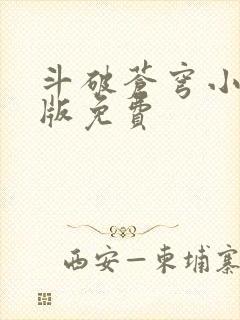 斗破苍穹小
版免费
西安—柬埔寨